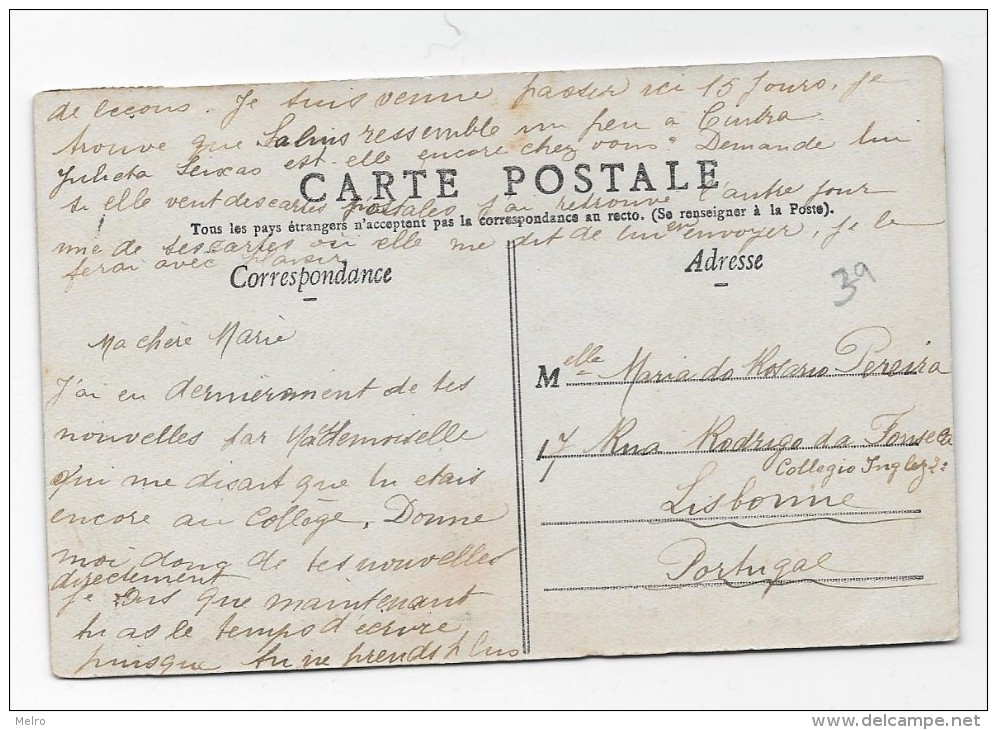 de leçons. Je suis venue passer ici 15 jours, je
trouve que Salins ressemble un peu a Cintra.
Julieta Seixas est-elle encore chez vous? Demande lui
si elle veut des cartes postales j'ai retrouvé l'autre jour
une de ses cartes ou elle me dit de lui en envoyer, je le
ferai avec plaisir
CARTE POSTALE
Tous les pays étrangers n'acceptent pas la correspondance au recto. (Se renseigner à la Poste).
Correspondance
Ma chère Marie
J'ai eu dernièrement de tes
nouvelles par Mademoiselle
qui me disait que tu etais
encore au College, Donne
moi donc de tes nouvelles
directement
je que maintenant
tu as le temps d'écrire
puisque tu ne prends plus
Adresse
39
Melle Maria do Rosario Pereira
17 Rua Rodrigo da Fonseca
Collegio Inglez
Lisbonne
Portugal
Melro
www.delcampe.net